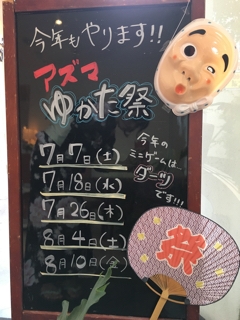 今年もやります!!
アズマ
ゆかた祭
7月7日(土)
7月18日(水)
7月26日(木)
8月4日(土)
8月10日(金)
今年の
ミニゲームは
ダーツ
です!!!
祭